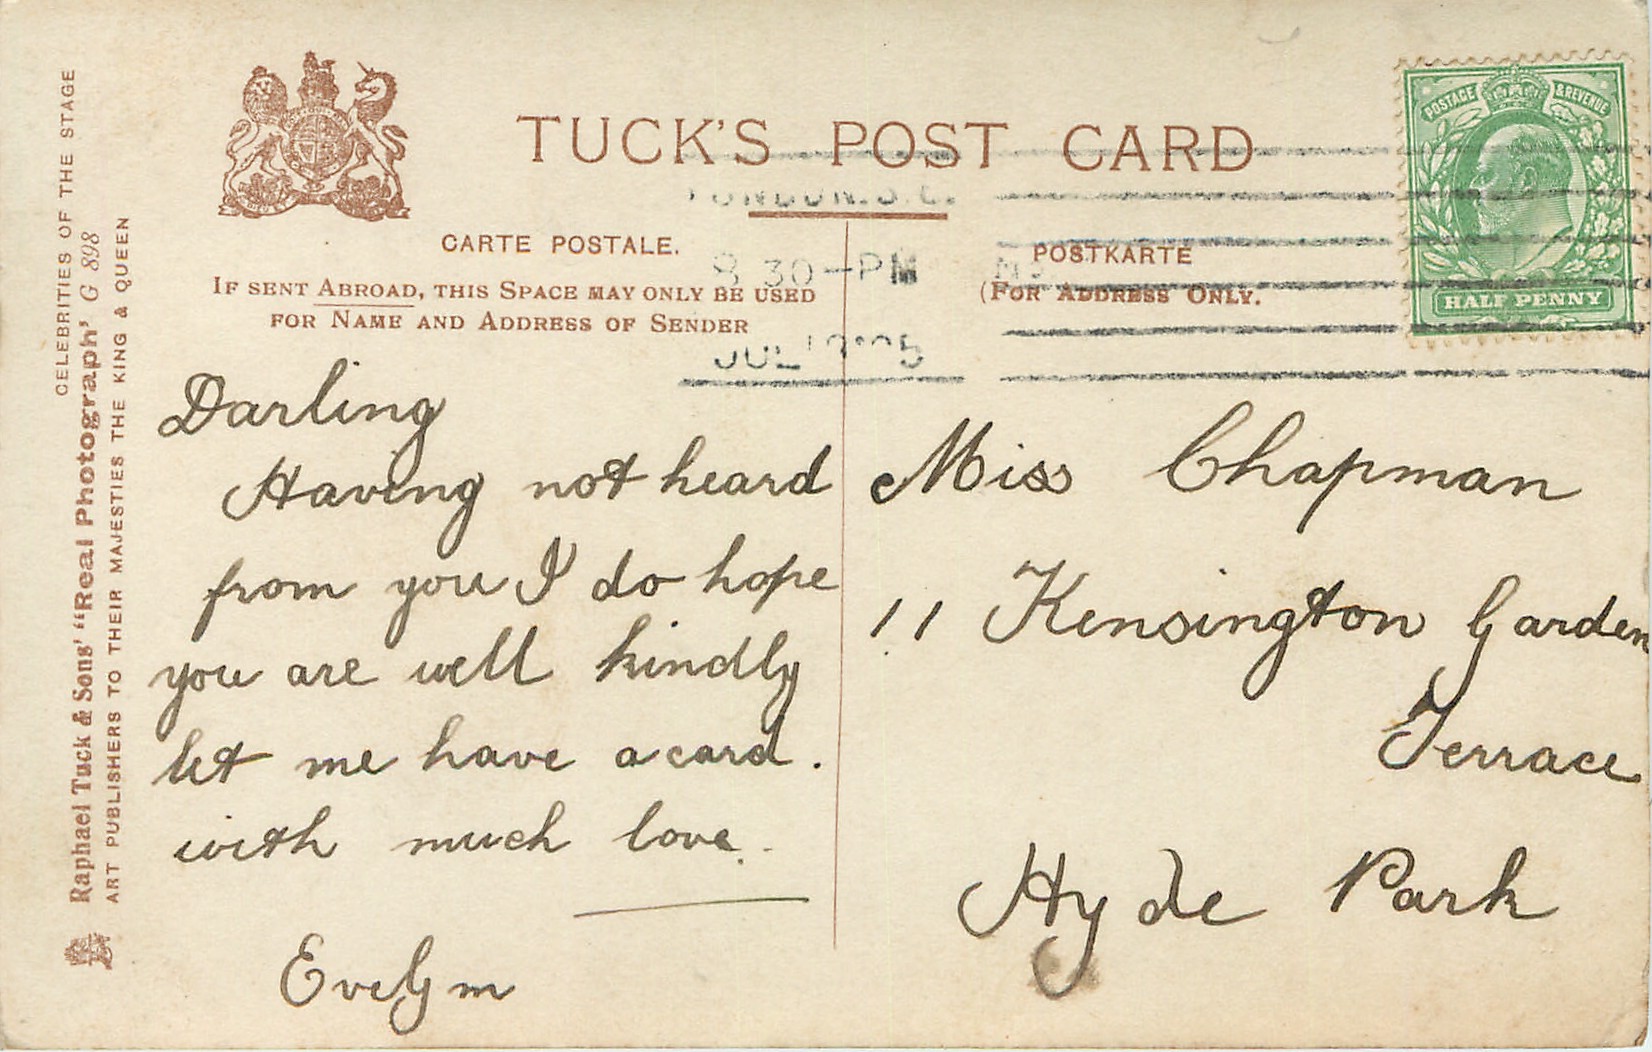 CELEBRITIES OF THE STAGE
Raphael Tuck & Sons' "Real Photograph" G 898
ART PUBLISHERS TO THEIR MAJESTIES THE KING & QUEEN
TUCK'S POST CARD
CARTE POSTALE.
IF SENT ABROAD, THIS SPACE MAY ONLY BE USED
FOR NAME AND ADDRESS OF SENDER
POSTKARTE
(FOR ADDRESS ONLY.
POSTAGE & REVENUE
HALF PENNY
LONDON. S.E.
8 30-PM
JUL
Darling
Having not heard
from you I do hope
you are well kindly
let me have a card.
with much love.
Evelyn
Miss Chapman
11 Kensington Garden
Terrace
Hyde Park